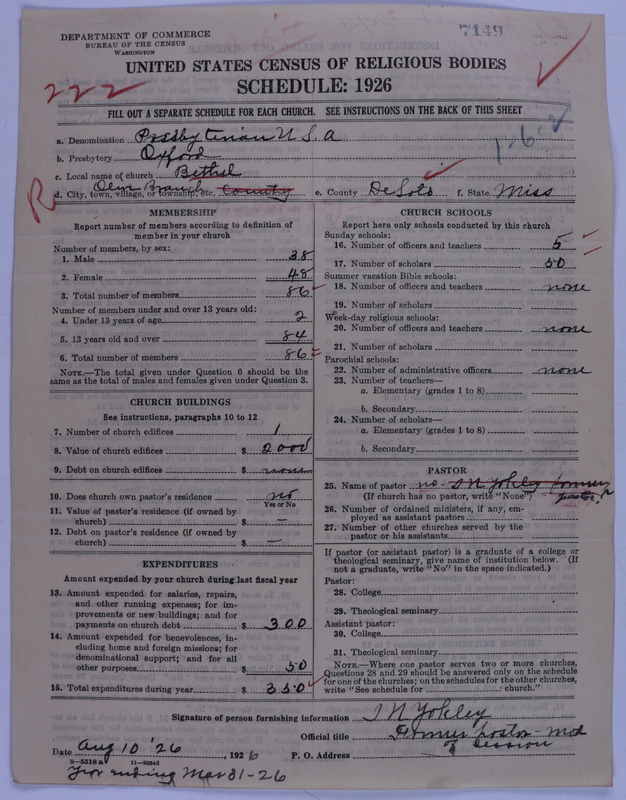 7149
DEPARTMENT OF COMMERCE
BUREAU OF THE CENSUS
WASHINGTON
UNITED STATES CENSUS OF RELIGIOUS BODIES
SCHEDULE: 1926
222
FILL OUT A SEPARATE SCHEDULE FOR EACH CHURCH. SEE INSTRUCTIONS ON THE BACK OF THIS SHEET
a. Denomination Presbyterian U S A
1-6-2
b. Presbytery Oxford
c. Local name of church Bethel
R
d. City, town, village, or township, etc. Olive Branch County e. County DeSoto f. State Miss
MEMBERSHIP
Report number of members according to definition of
member in your church
Number of members, by sex:
1. Male 38
2. Female 48
3. Total number of members 86
Number of members under and over 13 years old:
4. Under 13 years of age 2
5. 13 years old and over 84
6. Total number of members 86
NOTE.—The total given under Question 6 should be the
same as the total of males and females given under Question 3.
CHURCH BUILDINGS
See instructions, paragraphs 10 to 12
7. Number of church edifices 1
8. Value of church edifices $ 2000
9. Debt on church edifices $ none
10. Does church own pastor's residence no
Yes or No
11. Value of pastor's residence (if owned by
church) $ —
12. Debt on pastor's residence (if owned by
church) $ —
EXPENDITURES
Amount expended by your church during last fiscal year
13. Amount expended for salaries, repairs,
and other running expenses; for im-
provements or new buildings; and for
payments on church debt $ 300
14. Amount expended for benevolences, in-
cluding home and foreign missions; for
denominational support; and for all
other purposes $ 50
15. Total expenditures during year $ 350
CHURCH SCHOOLS
Report here only schools conducted by this church
Sunday schools:
16. Number of officers and teachers 5
17. Number of scholars 50
Summer vacation Bible schools:
18. Number of officers and teachers none
19. Number of scholars
Week-day religious schools:
20. Number of officers and teachers none
21. Number of scholars
Parochial schools:
22. Number of administrative officers none
23. Number of teachers—
a. Elementary (grades 1 to 8)
b. Secondary
24. Number of scholars—
a. Elementary (grades 1 to 8)
b. Secondary
PASTOR
25. Name of pastor no - I N Yokley former
(If church has no pastor, write "None") pastor
26. Number of ordained ministers, if any, em-
ployed as assistant pastors
27. Number of other churches served by the
pastor or his assistants
If pastor (or assistant pastor) is a graduate of a college or
theological seminary, give name of institution below. (If
not a graduate, write "No" in the space indicated.)
Pastor:
28. College
29. Theological seminary
Assistant pastor:
30. College
31. Theological seminary
NOTE.—Where one pastor serves two or more churches,
Questions 28 and 29 should be answered only on the schedule
for one of the churches; on the schedules for the other churches,
write "See schedule for church."
Signature of person furnishing information I N Yokley
Official title Former pastor - mod
of session
Date Aug 10 '26, 1926 P. O. Address
8—5518 a
Year ending Mar 31-26